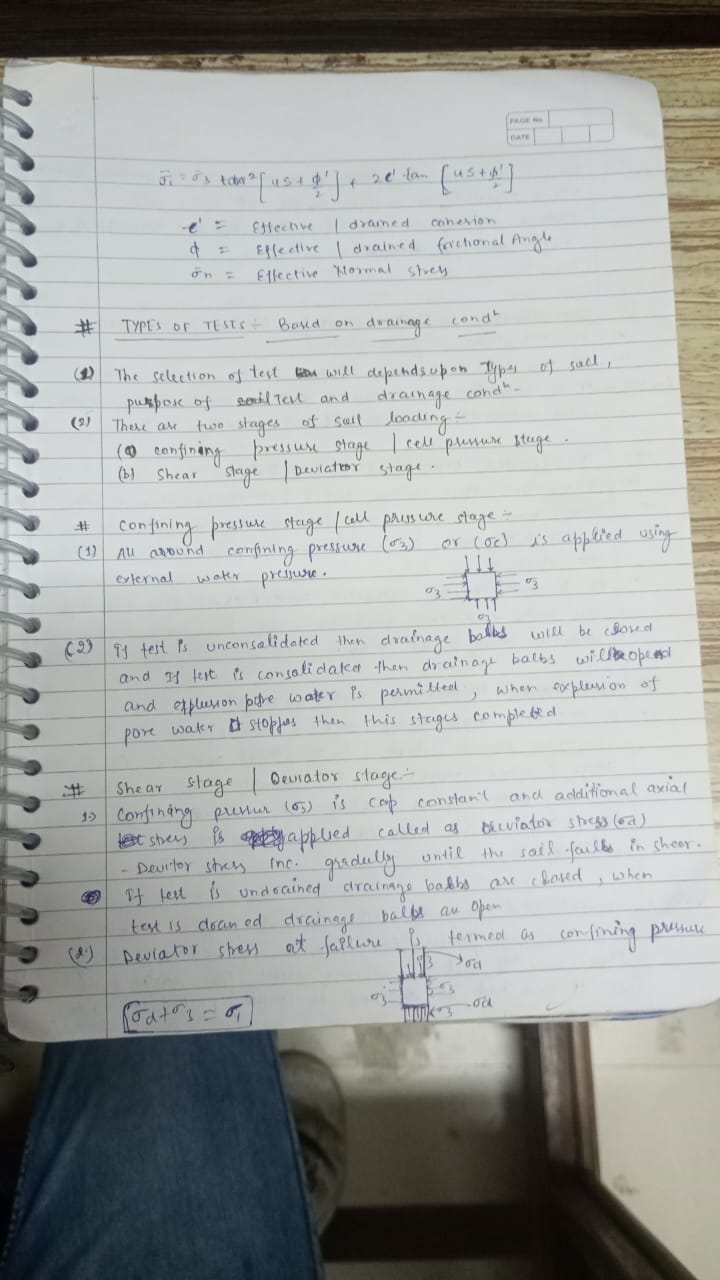 PAGE No
DATE
σ̄₁ = σ̄₃ tan² [45 + φ'/2] + 2c' tan [45 + φ'/2]
c' = Effective | drained cohesion
φ = Effective | drained frictional Angle
σ̄n = Effective Normal stress
# TYPES OF TESTS :- Based on drainage condⁿ
(1) The selection of test will depends upon Types of soil,
purpose of Test and drainage condⁿ.
(2) There are two stages of soil loading :-
(a) confining pressure stage | cell pressure stage.
(b) Shear stage | Deviattor stage.
# confining pressure stage / cell pressure stage :-
(1) All around confining pressure (σ3) or (σc) is applied using
external water pressure.
σ3 σ3
σ3
(2) If test is unconsolidated then drainage balbs will be closed
and If test is consolidated then drainage balbs will opend
and explusion pore water is permitted, when explusion of
pore water stoppes then this stages completed
# Shear stage | Deviator stage :-
1.) Confining pressur (σ3) is constant and additional axial
stress is applied called as Deviator stress (σd)
- Devitor stress Inc. gradully until the soil fails in sheor.
If test is undrained drainage balbs are closed, when
test is drained drainage balbs are open
(2.) Deviator stress at failure is termed as confining pressure
σ3 σd
σ3 σ3
σ3 σd
σd + σ3 = σ1